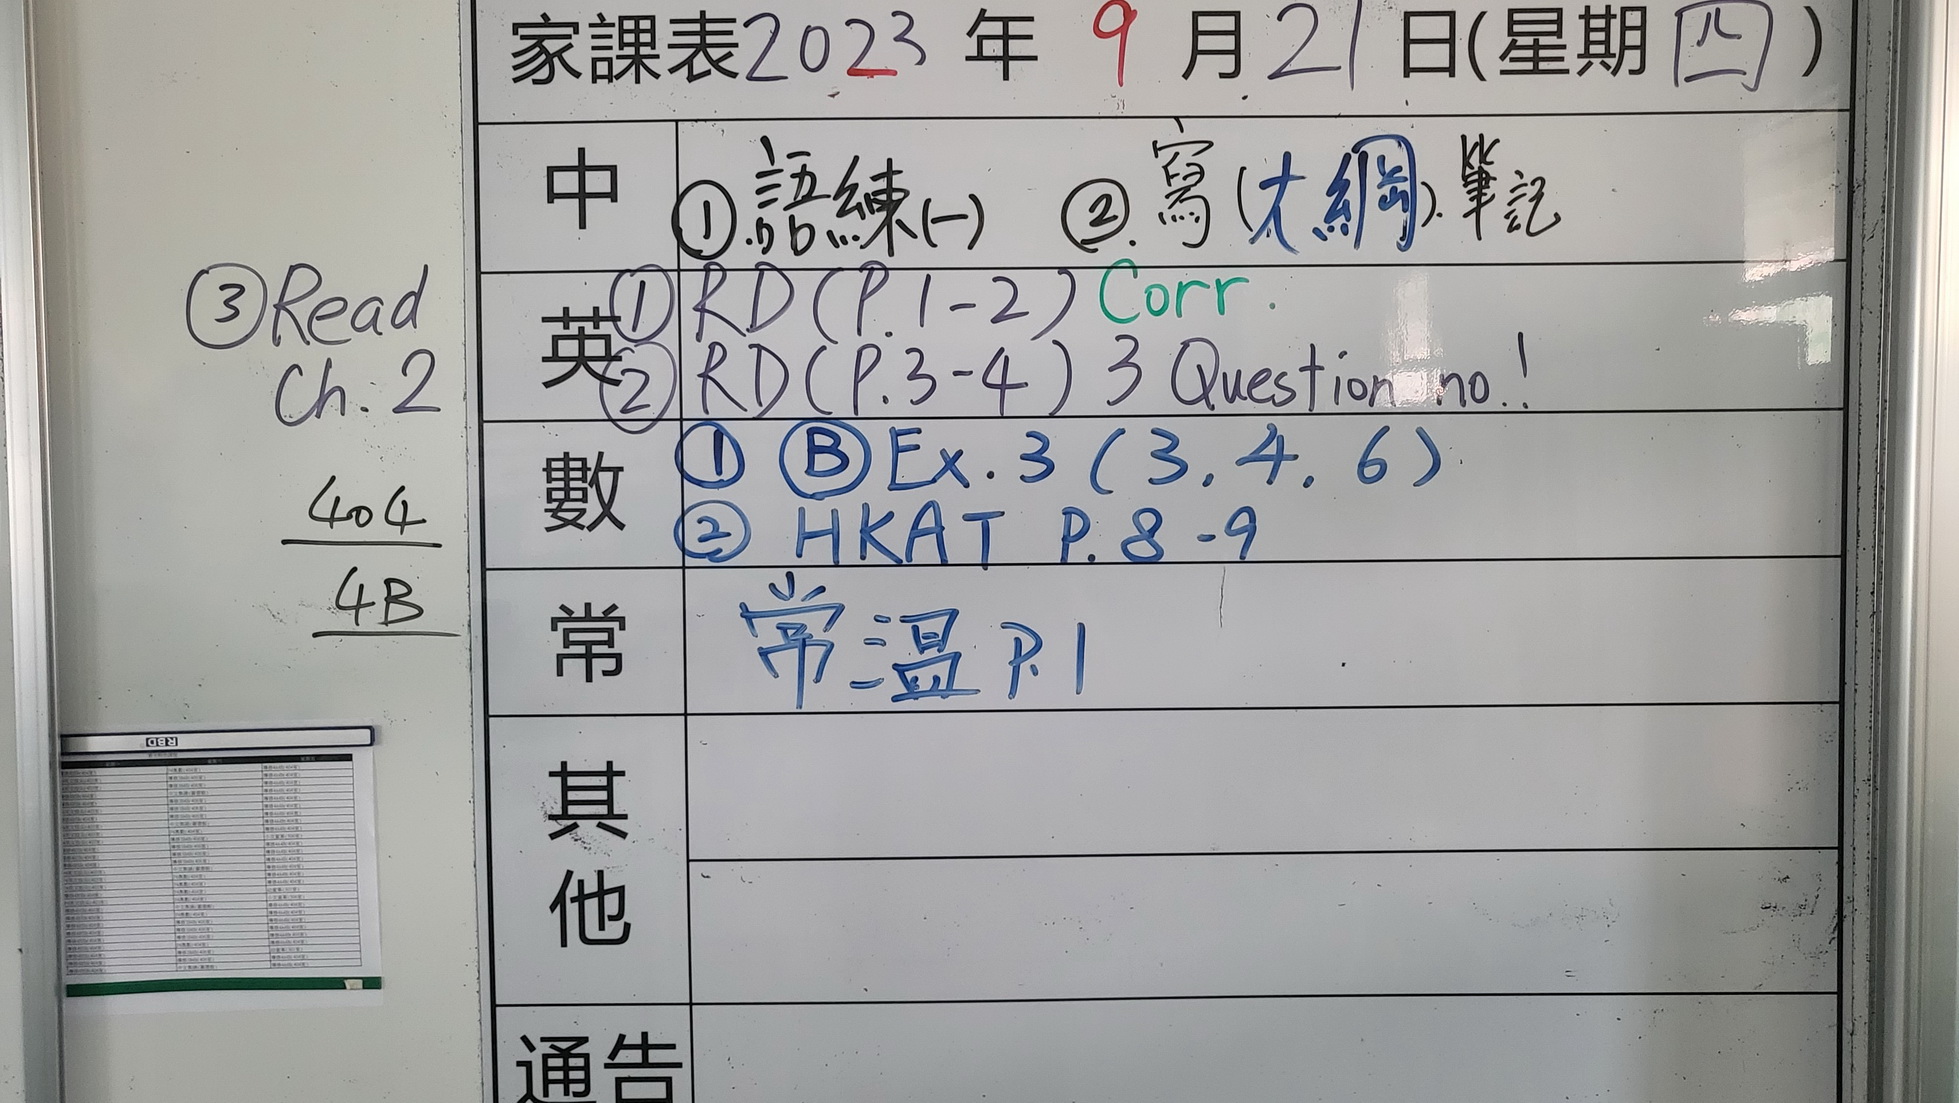 家課表2023年9月21日(星期四)
中
①.語練(一) ②.寫(大綱).筆記
英
①RD(P.1-2) Corr.
②RD(P.3-4) 3 Question no.!
③Read
Ch.2
數
① Ⓑ Ex.3 (3.4.6)
② HKAT P.8-9
404
4B
常
常溫 P.1
RBD
其他
通告